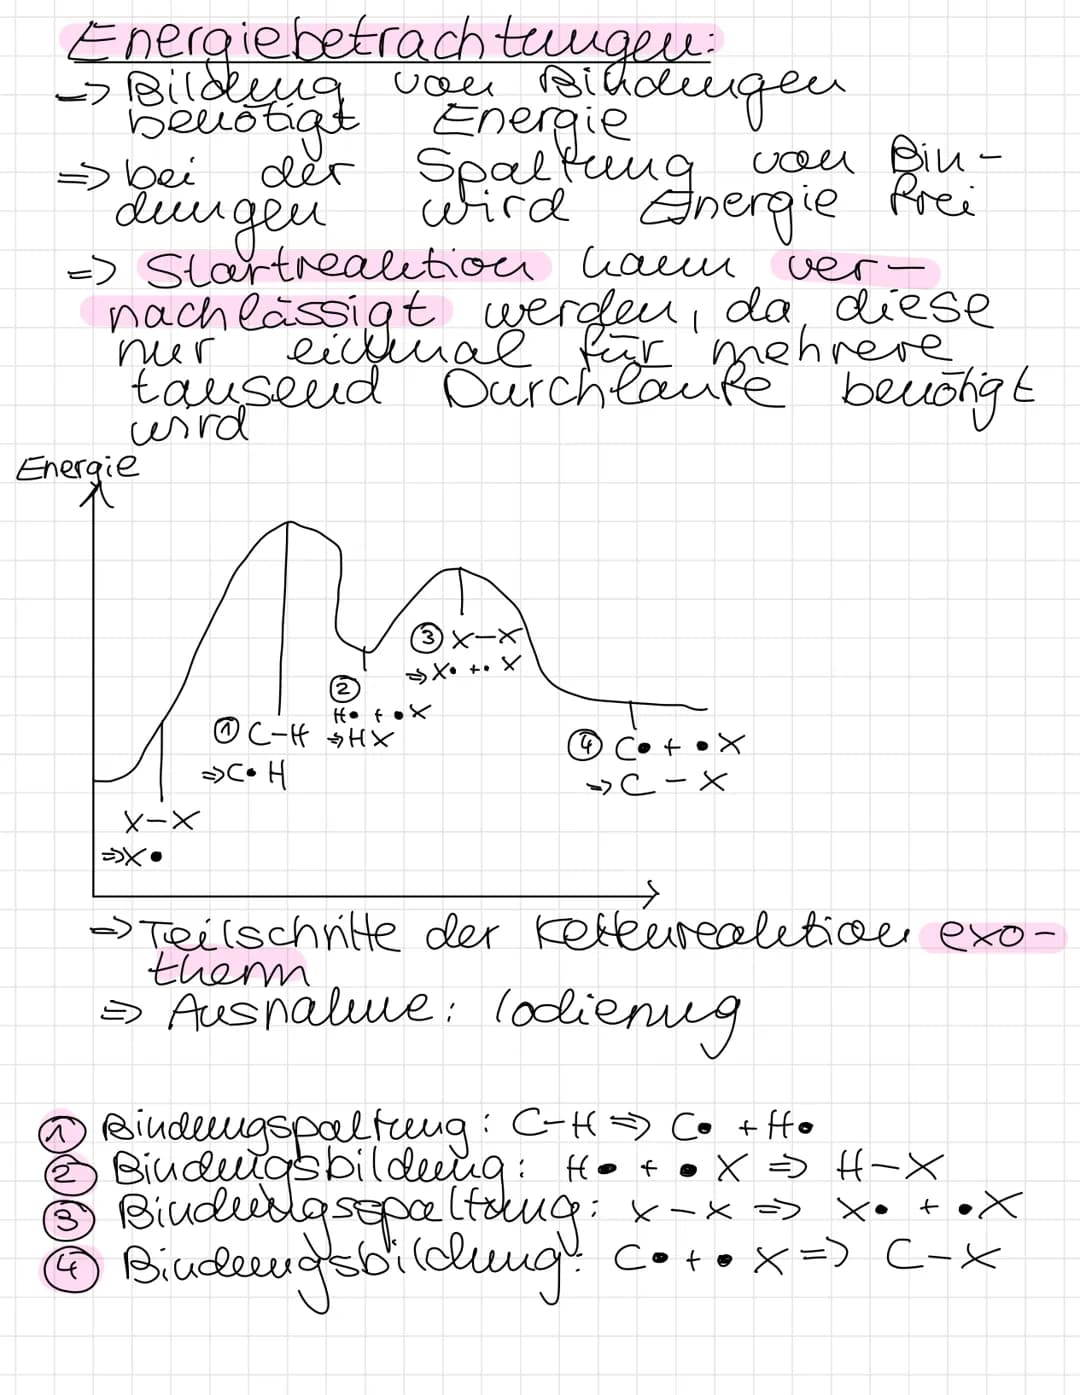 Energiebetrachtungen:
=> Bildung von Bindungen
benötigt Energie
=> bei der Spaltung von Bin-
dungen wird Energie frei
=> Startreaktion kann ver-
nachlässigt werden, da diese
nur einmal für mehrere
tausend Durchläufe benötigt
wird
Energie
③ X-X
=> X• + • X
②
H• + •X
=> HX
① C-H
=> C• H
④ C• + •X
=> C - X
X-X
=> X•
=> Teilschritte der Kettenreaktion exo-
therm
=> Ausnahme: Iodierung
① Bindungspaltung: C-H => C• + H•
② Bindungsbildung: H• + •X => H-X
③ Bindungsspaltung: X-X => X• + •X
④ Bindungsbildung: C• + •X => C-X